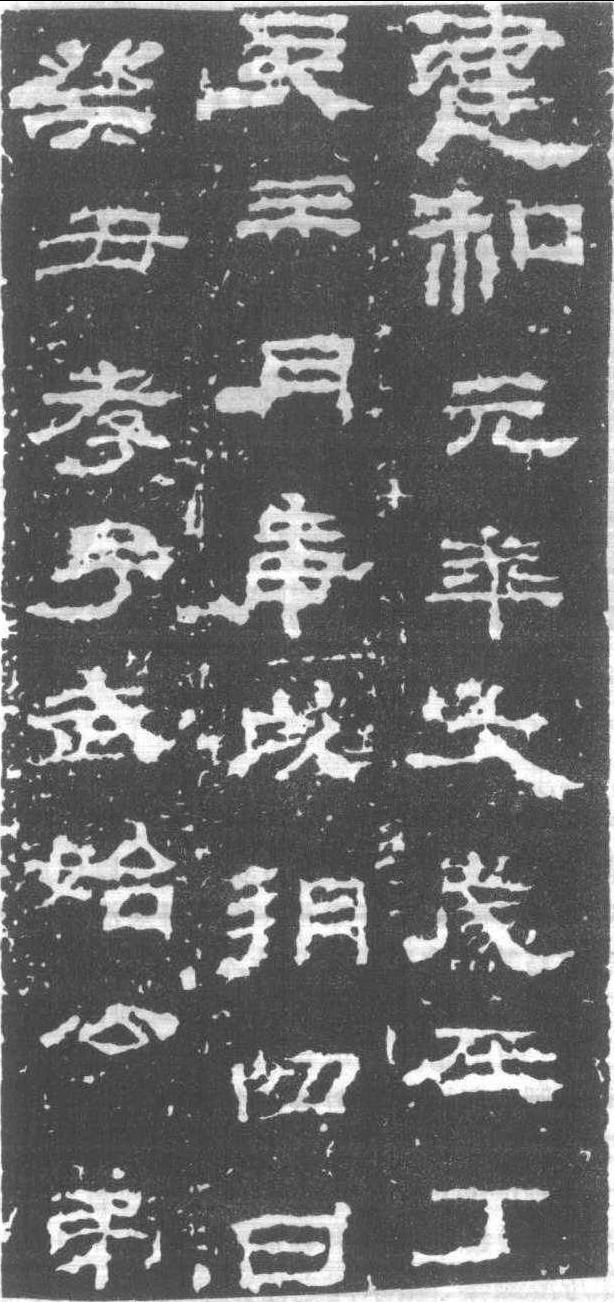 建和元年大歲在丁
亥三月庚戌朔四日
癸丑孝子武始公弟